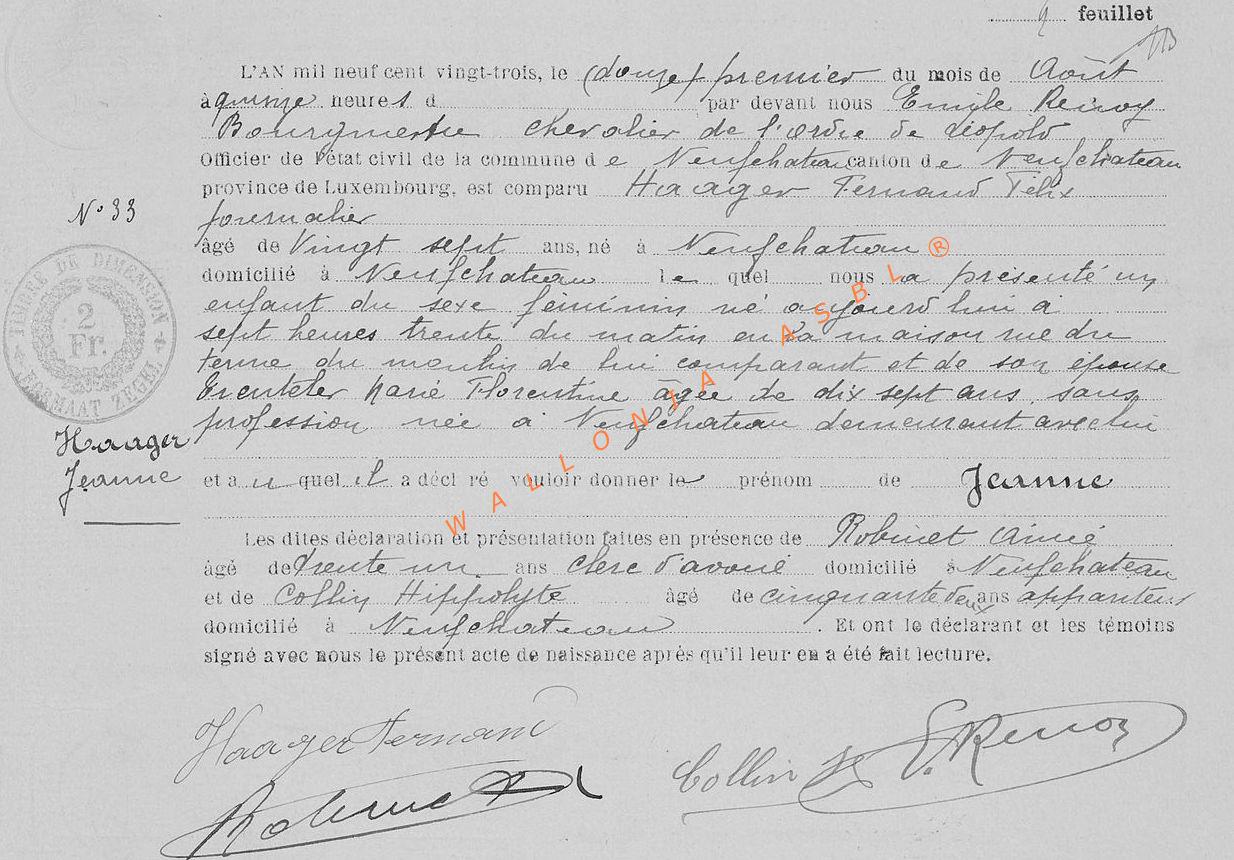 9 feuillet
L'AN mil neuf cent vingt-trois, le (douze) premier du mois de Août
à quinze heures d par devant nous Emile Renoy
Bourgmestre chevalier de l'ordre de Léopold
Officier de l'état civil de la commune de Neufchateau canton de Neufchateau
province de Luxembourg, est comparu Haager Fernand Félix
N° 33
journalier
âgé de Vingt sept ans, né à Neufchateau
domicilié à Neufchateau le quel nous a présenté un
enfant du sexe féminin né aujourd'hui à
sept heures trente du matin en sa maison rue du
terme du moulin de lui comparant et de son épouse
Marie Florentine âgée de dix sept ans, sans
profession née à Neufchateau demeurant avec lui
TIMBRE DE DIMENSION
2
Fr.
FORMAAT ZEGEL
Haager
Jeanne
et a u quel il a décl ré vouloir donner le prénom de Jeanne
Les dites déclaration et présentation faites en présence de Robinet Aimé
âgé de trente un ans clerc d'avoué domicilié à Neufchateau
et de Collin Hippolyte âgé de cinquante deux ans appariteur
domicilié à Neufchateau. Et ont le déclarant et les témoins
signé avec nous le présent acte de naissance après qu'il leur en a été fait lecture.
WALLONIA ASBL ®
Haager Fernand
Collin H E. Renoy
Robinet A